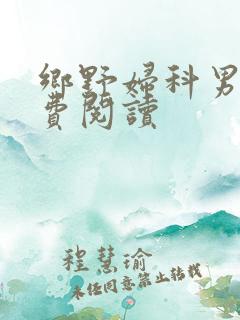 鄉野婦科男
費閱讀
程慧瑜
未任同意禁止转载